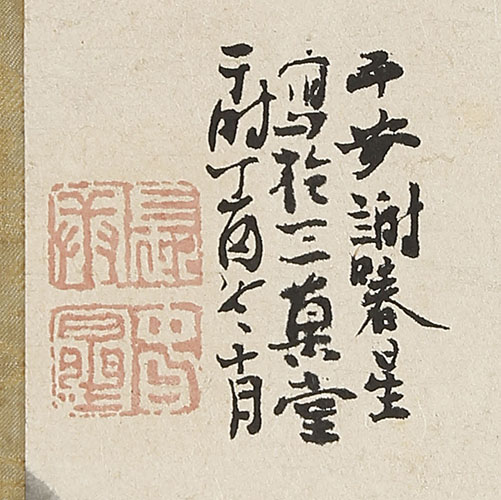 平安謝春星
寫於三菓堂
于時丁酉冬十月